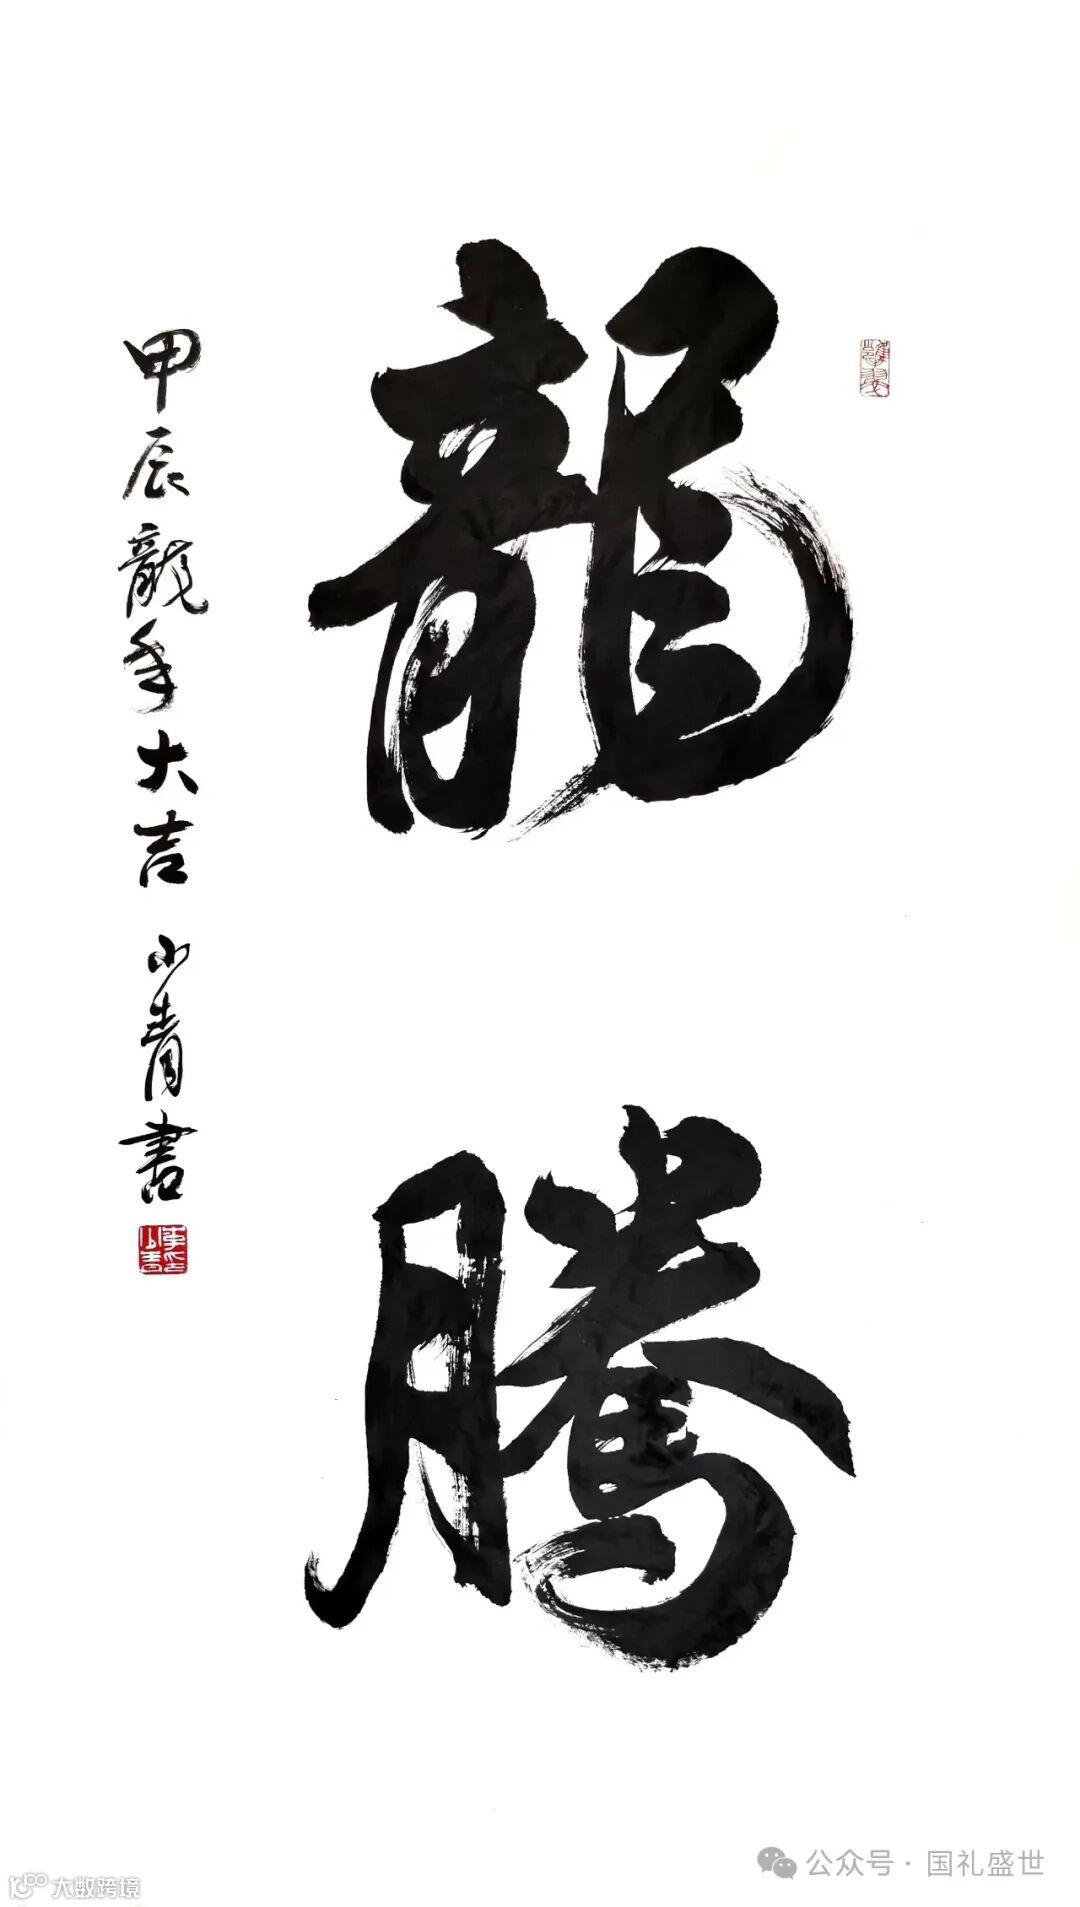 龍
騰
甲辰龍年大吉 小青書
公众号·国礼盛世
大数跨境